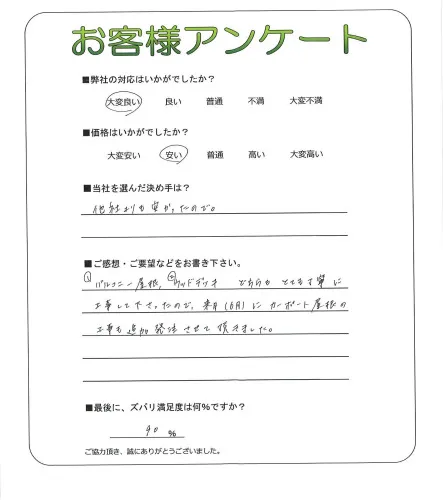 お客様アンケート
■弊社の対応はいかがでしたか？
大変良い 良い 普通 不満 大変不満
■価格はいかがでしたか？
大変安い 安い 普通 高い 大変高い
■当社を選んだ決め手は？
他社よりも安かったので。
■ご感想・ご要望などをお書き下さい。
バルコニー屋根、ウッドデッキ どちらも とても丁寧に
工事して下さったので、来月(6月)に カーポート屋根の
工事も追加発注させて頂きました。
■最後に、ズバリ満足度は何%ですか？
90 %
ご協力頂き、誠にありがとうございました。